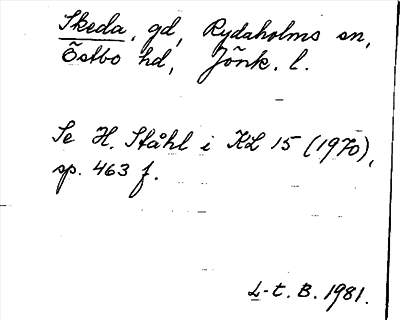 Skeda, gd, Rydaholms sn,
Östbo hd, Jönk. l.
Se H. Ståhl i KL 15 (1970),
sp. 463 f.
L-t. B. 1981.